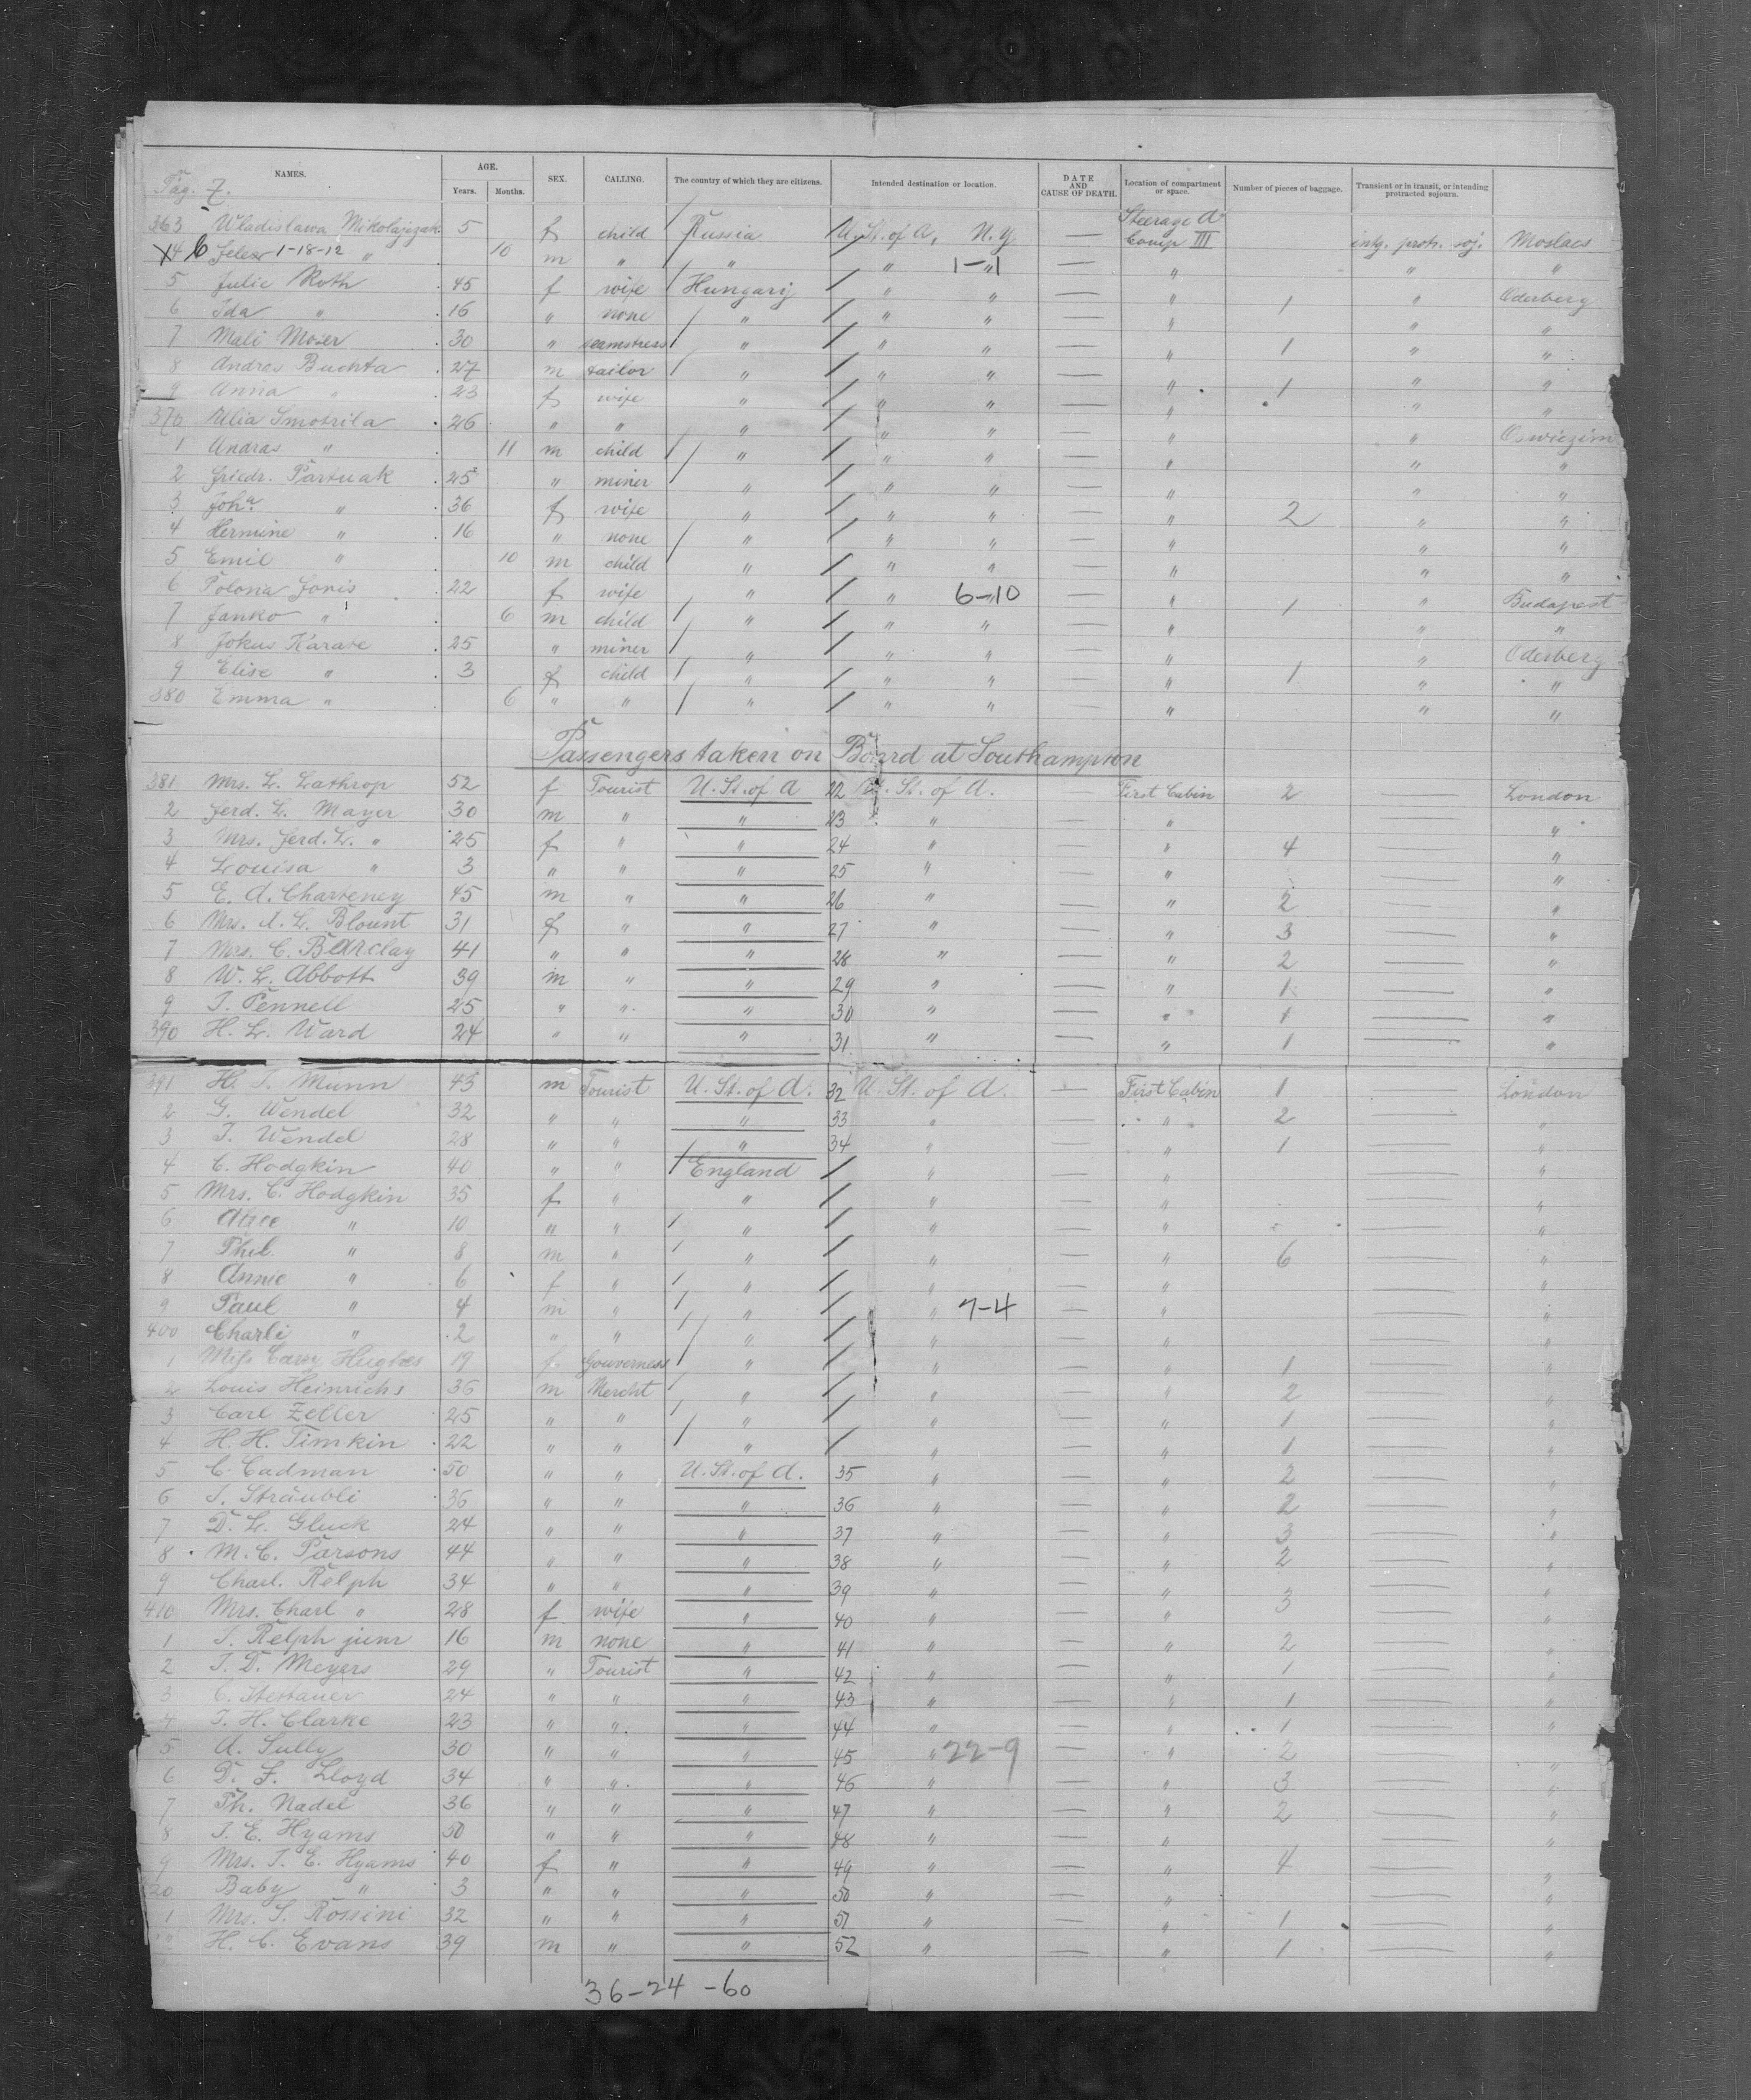 NAMES. AGE. Years. Months. SEX. CALLING. The country of which they are citizens. Intended destination or location. DATE AND CAUSE OF DEATH. Location of compartment or space. Number of pieces of baggage. Transient or in transit, or intending protracted sojourn.
Pag. 7.
363 Wladislawa Mikolajezak 5 f child / Russia U. St. of A, N. Y — Steerage A Comp III intg. protr. soj. Moslacs
X4 6 Felex 1-18-12 " 10 m " / " / " 1-1 " — " " "
5 Julie Roth 45 f wife Hungary / " " — " 1 " Oderberg
6 Ida " 16 " none / " / " " — " " "
7 Mali Moser 30 " seamstress / " / " " — " 1 " "
8 Andras Buchta 27 m tailor / " / " " — " " "
9 Anna " 23 f wife " / " " — " 1 " "
370 Ulia Smotrila 26 " " " / " " — " " Oswiezim
1 Andras " 11 m child / " / " " — " " "
2 Friedr. Partuak 25 " miner / " / " " — " " "
3 Joha " 36 f wife " / " " — " 2 " "
4 Hermine " 16 " none / " / " " — " " "
5 Emil " 10 m child " / " " — " " "
6 Polona Jonis 22 f wife " / " 6-10 " — " 1 " Budapest
7 Janko " 6 m child / " / " " — " " "
8 Jokus Karate 25 " miner / " / " " — " " Oderberg
9 Elise " 3 f child / " / " " — " 1 " "
380 Emma " 6 " " / " / " " — " " "
Passengers taken on Board at Southampton
381 Mrs. L. Lathrop 52 f Tourist U. St. of A 22 U. St. of A. — First Cabin 2 — London
2 Ferd. L. Mayer 30 m " " 23 " — " — "
3 Mrs. Ferd. L. " 25 f " " 24 " — " 4 — "
4 Louisa " 3 " " " 25 " — " — "
5 E. A. Charteney 45 m " " 26 " — " 2 — "
6 Mrs. A. L. Blount 31 f " " 27 " — " 3 — "
7 Mrs. C. Barclay 41 " " " 28 " — " 2 — "
8 W. L. Abbott 39 m " " 29 " — " 1 — "
9 T. Pennell 25 " " " 30 " — " 1 — "
390 H. L. Ward 24 " " " 31 " — " 1 — "
391 H. T. Munn 43 m Tourist U. St. of A. 32 U. St. of A. — First Cabin 1 — London
2 G. Wendel 32 " " " 33 " — " 2 — "
3 T. Wendel 28 " " " 34 " — " 1 — "
4 C. Hodgkin 40 " " / England / " — " — "
5 Mrs. C. Hodgkin 35 f " " / " — " — "
6 Alice " 10 " " / " / " — " — "
7 Phil. " 8 m " / " / " — " 6 — "
8 Annie " 6 f " / " / " — " — "
9 Paul " 4 m " / " / " 7-4 — " — "
400 Charli " 2 " " / " / " — " — "
1 Miss Carry Hughes 19 f Gouverness / " / " — " 1 — "
2 Louis Heinrichs 36 m Mercht / " / " — " 2 — "
3 Carl Zeller 25 " " / " / " — " 1 — "
4 H. H. Timkin 22 " " / " / " — " 1 — "
5 C. Cadman 50 " " U. St. of A. 35 " — " 2 — "
6 S. Sträubli 36 " " " 36 " — " 2 — "
7 D. L. Gluck 24 " " " 37 " — " 3 — "
8 M. C. Parsons 44 " " " 38 " — " 2 — "
9 Charl. Relph 34 " " " 39 " — " 3 — "
410 Mrs. Charl " 28 f wife " 40 " — " — "
1 S. Relph junr 16 m none " 41 " — " 2 — "
2 T. D. Meyers 29 " Tourist " 42 " — " 1 — "
3 C. 24 " " " 43 " — " 1 — "
4 T. H. Clarke 23 " " " 44 " — " 1 — "
5 A. Sully 30 " " " 45 " 22-9 — " 2 — "
6 D. F. Lloyd 34 " " " 46 " — " 3 — "
7 Th. Nadel 36 " " " 47 " — " 2 — "
8 T. E. Hyams 50 " " " 48 " — " — "
9 Mrs. T. E. Hyams 40 f " " 49 " — " 4 — "
20 Baby " 3 " " " 50 " — " — "
1 Mrs. S. Rossini 32 " " " 51 " — " 1 — "
H. C. Evans 39 m " " 52 " — " 1 — "
36-24-60